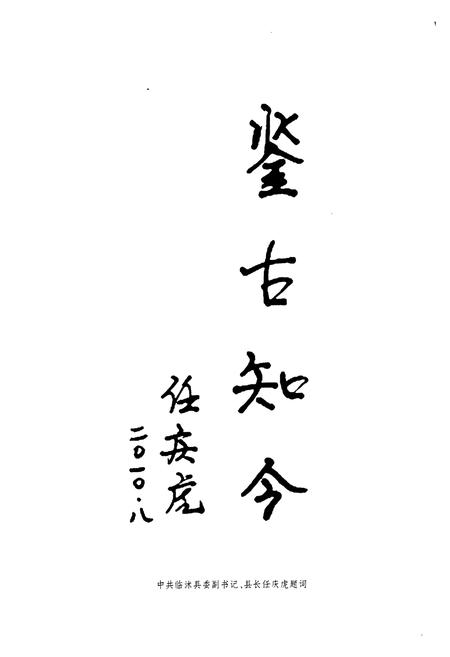 鉴古知今
任庆虎
二〇一〇·八
中共临沭县委副书记、县长任庆虎题词